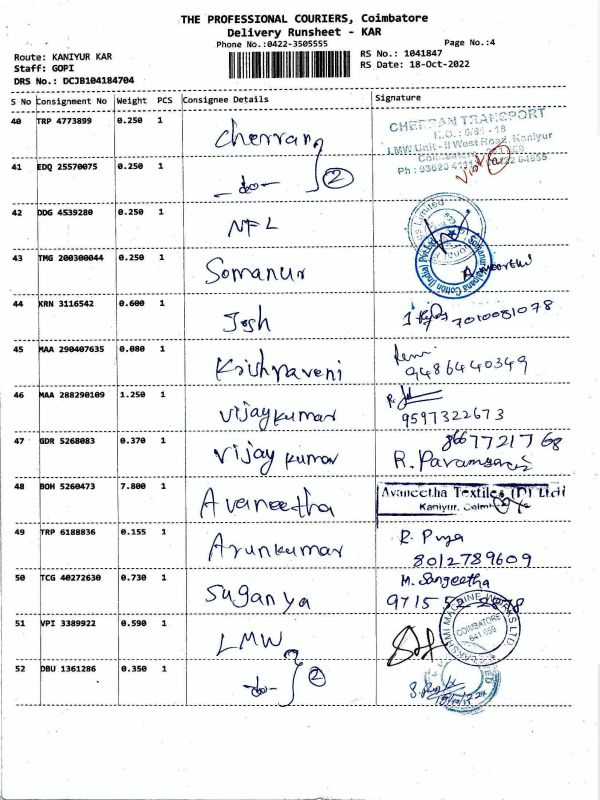 THE PROFESSIONAL COURIERS, Coimbatore
Delivery Runsheet - KAR
Phone No.:0422-3505555
Page No.:4
Route: KANIYUR KAR
Staff: GOPI
DRS No.: DCJB104184704
RS No.: 1041847
RS Date: 18-Oct-2022
S No Consignment No Weight PCS Consignee Details Signature
40 TRP 4773899 0.250 1 Cherran CHERRAN TRANSPORT
LMW Unit - II West Road, Kaniyur
41 EDQ 25570075 0.250 1 -do- 2
42 DDG 4539280 0.250 1 NFL
43 TMG 200300044 0.250 1 Somanur
44 KRN 3116542 0.600 1 Josh 7010081078
45 MAA 290407635 0.080 1 Krishnaveni
9486440349
46 MAA 288290109 1.250 1 Vijaykumar
9597322673
47 GDR 5268083 0.370 1 Vijay kumar 8667721768
48 BOH 5260473 7.800 1 Avaneetha Avaneetha Textiles (P) Ltd
Kaniyur, Coimb
49 TRP 6188836 0.155 1 Arunkumar
8012789609
50 TCG 40272630 0.730 1 Suganya M. Sangeetha
51 VPI 3389922 0.590 1 LMW LAKSHMI MACHINE WORKS LTD
COIMBATORE
52 DBU 1361286 0.350 1 -do- 2